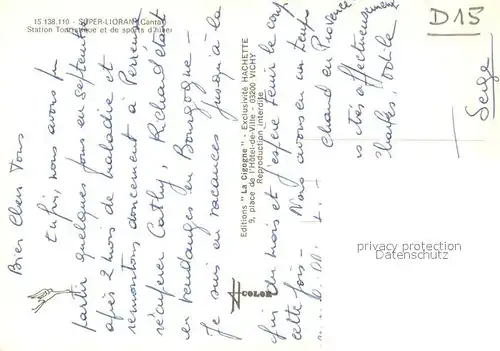 15.138.119 - SUPER-LIORAN (Cantal)
Station Touristique et de sports d'hiver
Bien Chers Tous
Enfin, nous avons pu
partir quelques jours en Septembre
après 2 mois de maladie et
remontons doucement à Perreux
récupérer Cathy, Richard étant
en vendanges en Bourgogne -
Je suis en vacances jusqu'à la
fin du mois et j'espère tenir le coup
cette fois - Nous avons eu un temps
chaud en Provence
très affectueusement
Charles, Odile
Serge
D15
Editions "La Cigogne" - Exclusivité HACHETTE
9, place de l'Hôtel-de-Ville - 03200 VICHY
Reproduction interdite
COLOR
privacy protection
Datenschutz